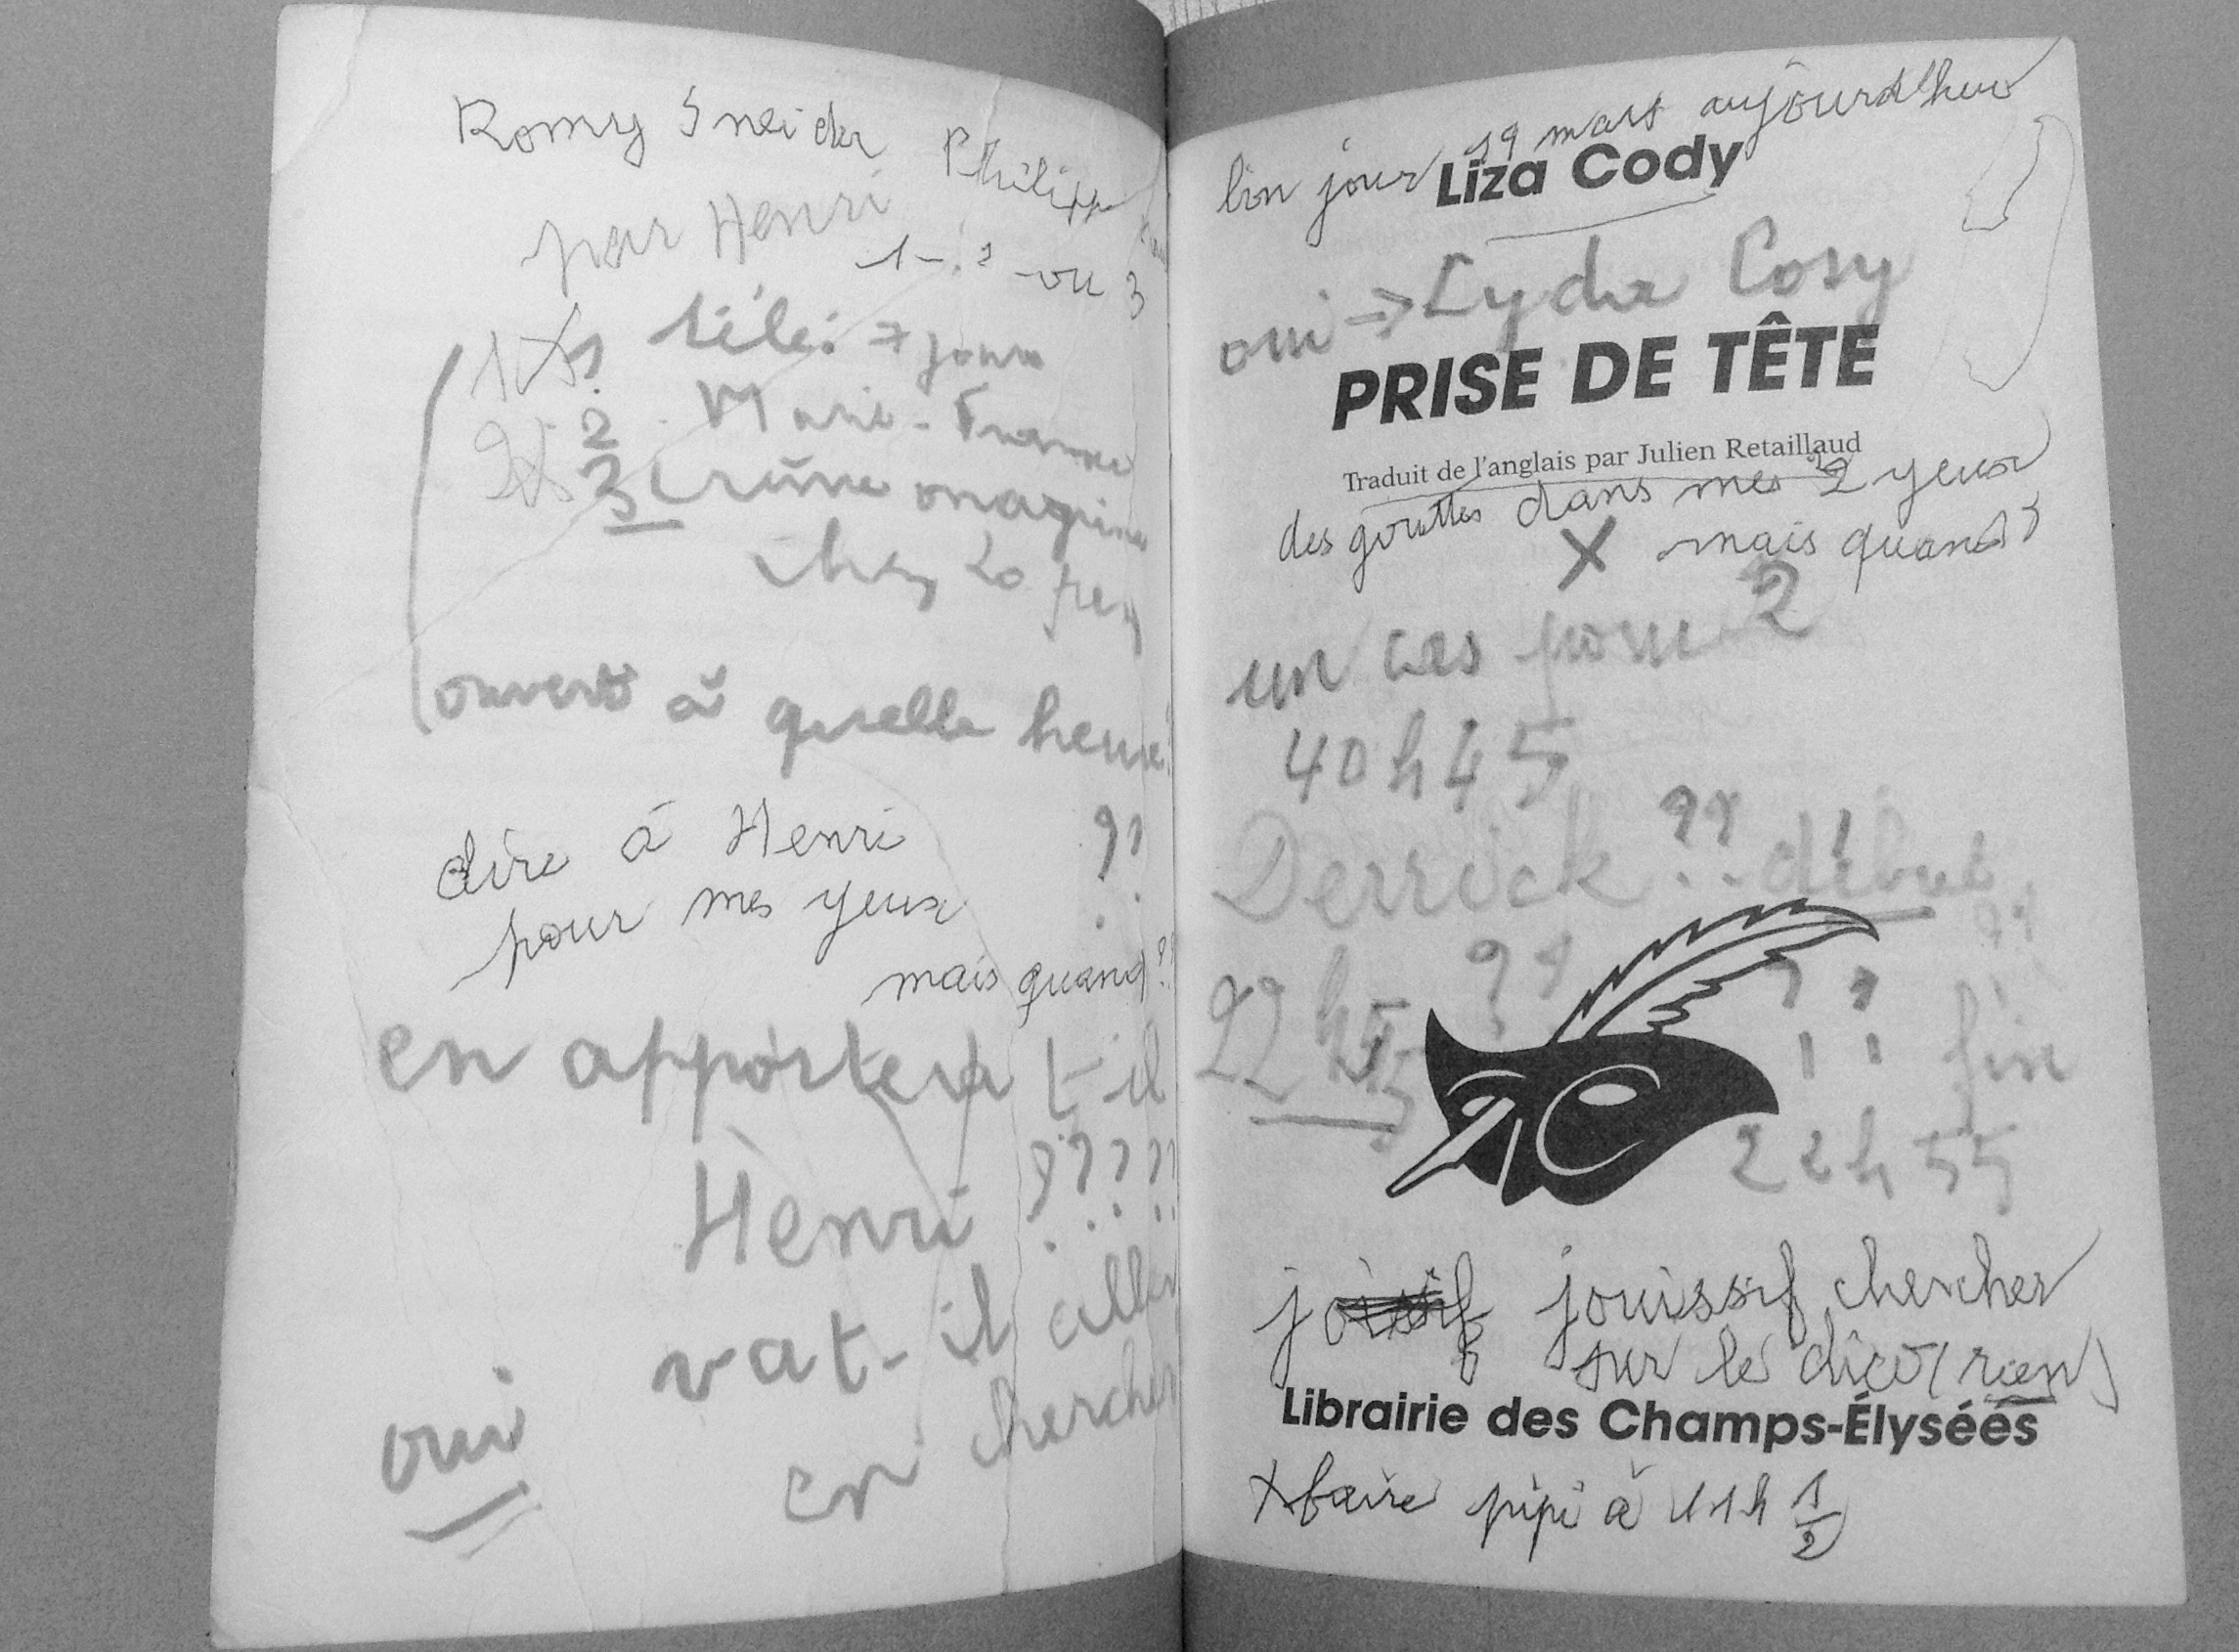 Romy Sneider Philipp
par Henri
1 - 2 ou 3
1 télé 7 jours
2 Marie-France
3 Crime magazine
chez
ouvert à quelle heure
??
dire à Henri
pour mes yeux
mais quand ??
en apportera t-il
Henri ????
vat-il aller
en chercher
oui
jour 19 mars aujourd'hui
Liza Cody
oui => Lydia Cosy
PRISE DE TÊTE
Traduit de l'anglais par Julien Retaillaud
des gouttes dans mes 2 yeux
X mais quand ?
un cas pour 2
40h45
Derrick ?? début
22h ?? fin
22h55
jouissif chercher
sur le dico (rien)
Librairie des Champs-Élysées
X faire pipi à 11h 1/2